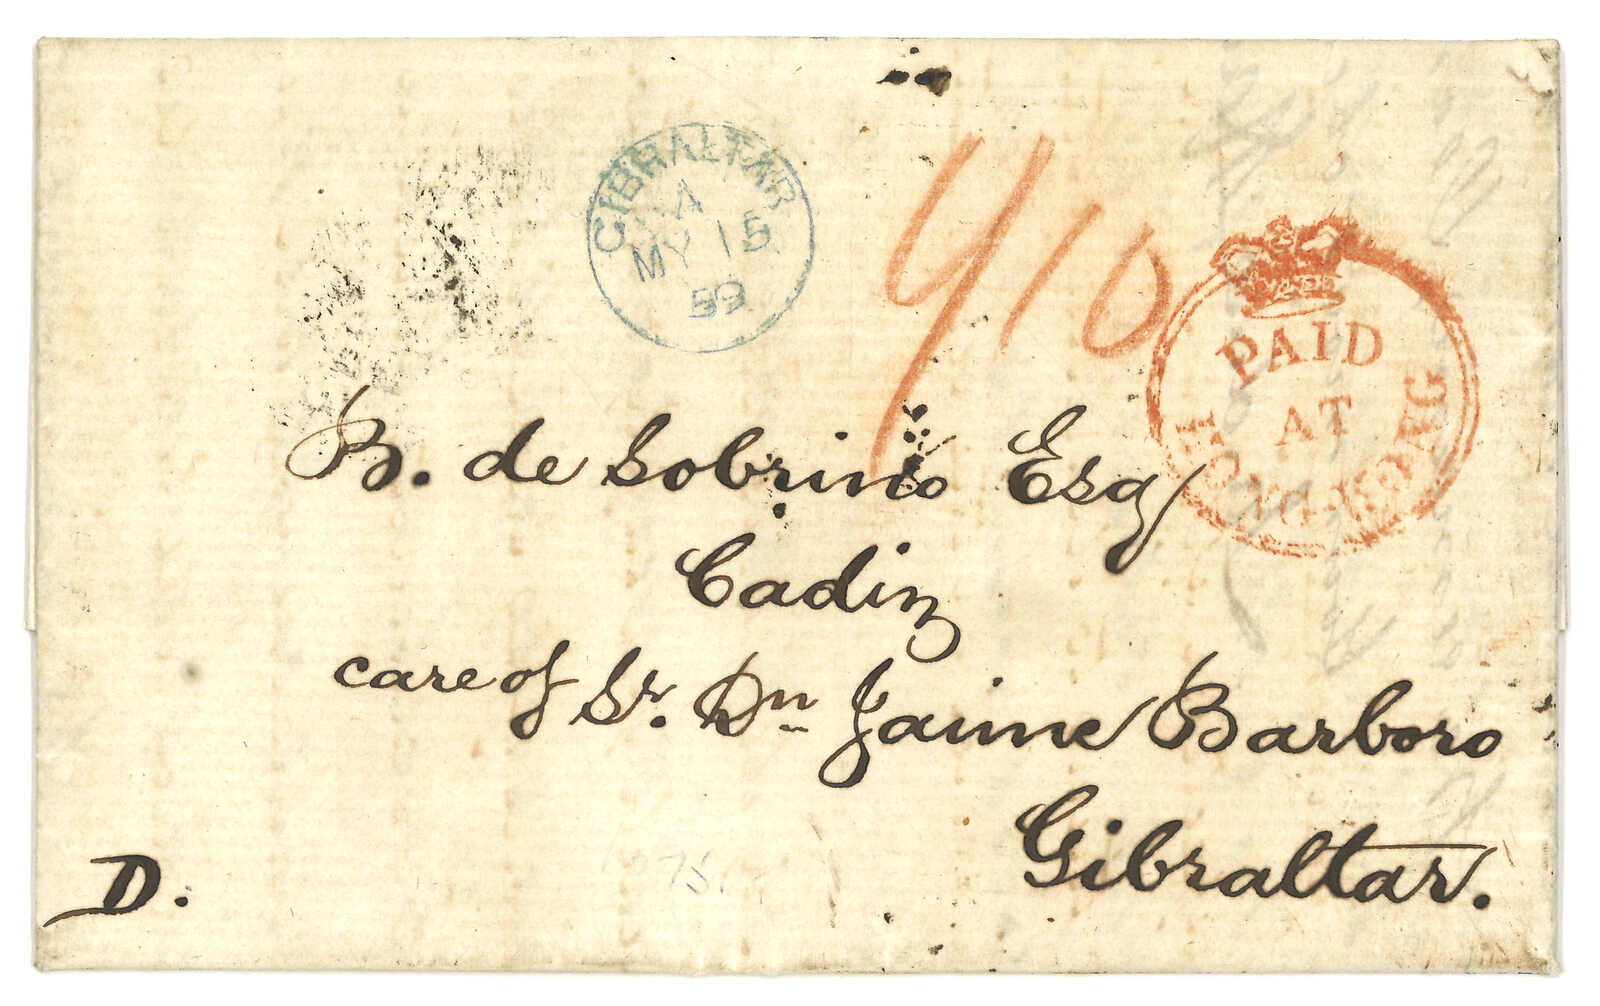 GIBRALTAR
A
MY 15
59
1/10
PAID
AT
HONG-KONG
B. de Sobrino Esq
Cadiz
care of Sr. Dn Jaime Barboro
Gibraltar.
D.